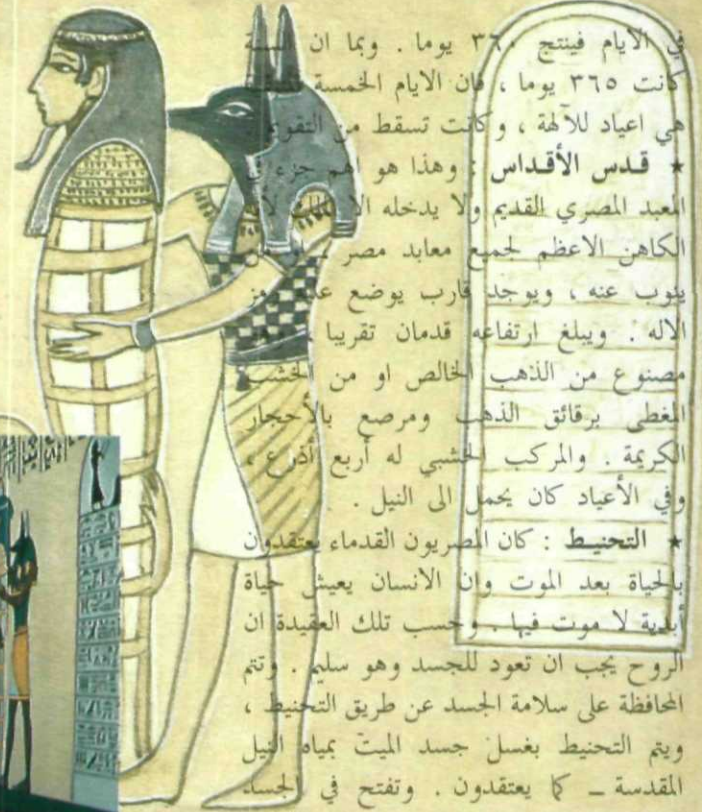 في الأيام فينتج ٣٦٠ يوما . وبما ان السنة
كانت ٣٦٥ يوما ، فان الايام الخمسة
هي اعياد للآلهة ، وكانت تسقط من التقويم
★ قدس الأقداس : وهذا هو اهم جزء في
المعبد المصري القديم ولا يدخله الا
الكاهن الاعظم لجميع معابد مصر
ينوب عنه ، ويوجد قارب يوضع عليه رمز
الاله . ويبلغ ارتفاعه قدمان تقريبا ،
مصنوع من الذهب الخالص او من الخشب
المغطى برقائق الذهب ومرصع بالأحجار
الكريمة . والمركب الخشبي له أربع أذرع ،
وفي الأعياد كان يحمل الى النيل .
★ التحنيط : كان المصريون القدماء يعتقدون
بالحياة بعد الموت وان الانسان يعيش حياة
أبدية لا موت فيها . وحسب تلك العقيدة ان
الروح يجب ان تعود للجسد وهو سليم . وتتم
المحافظة على سلامة الجسد عن طريق التحنيط ،
ويتم التحنيط بغسل جسد الميت بمياه النيل
المقدسة ــ كما يعتقدون . وتفتح في الجسد